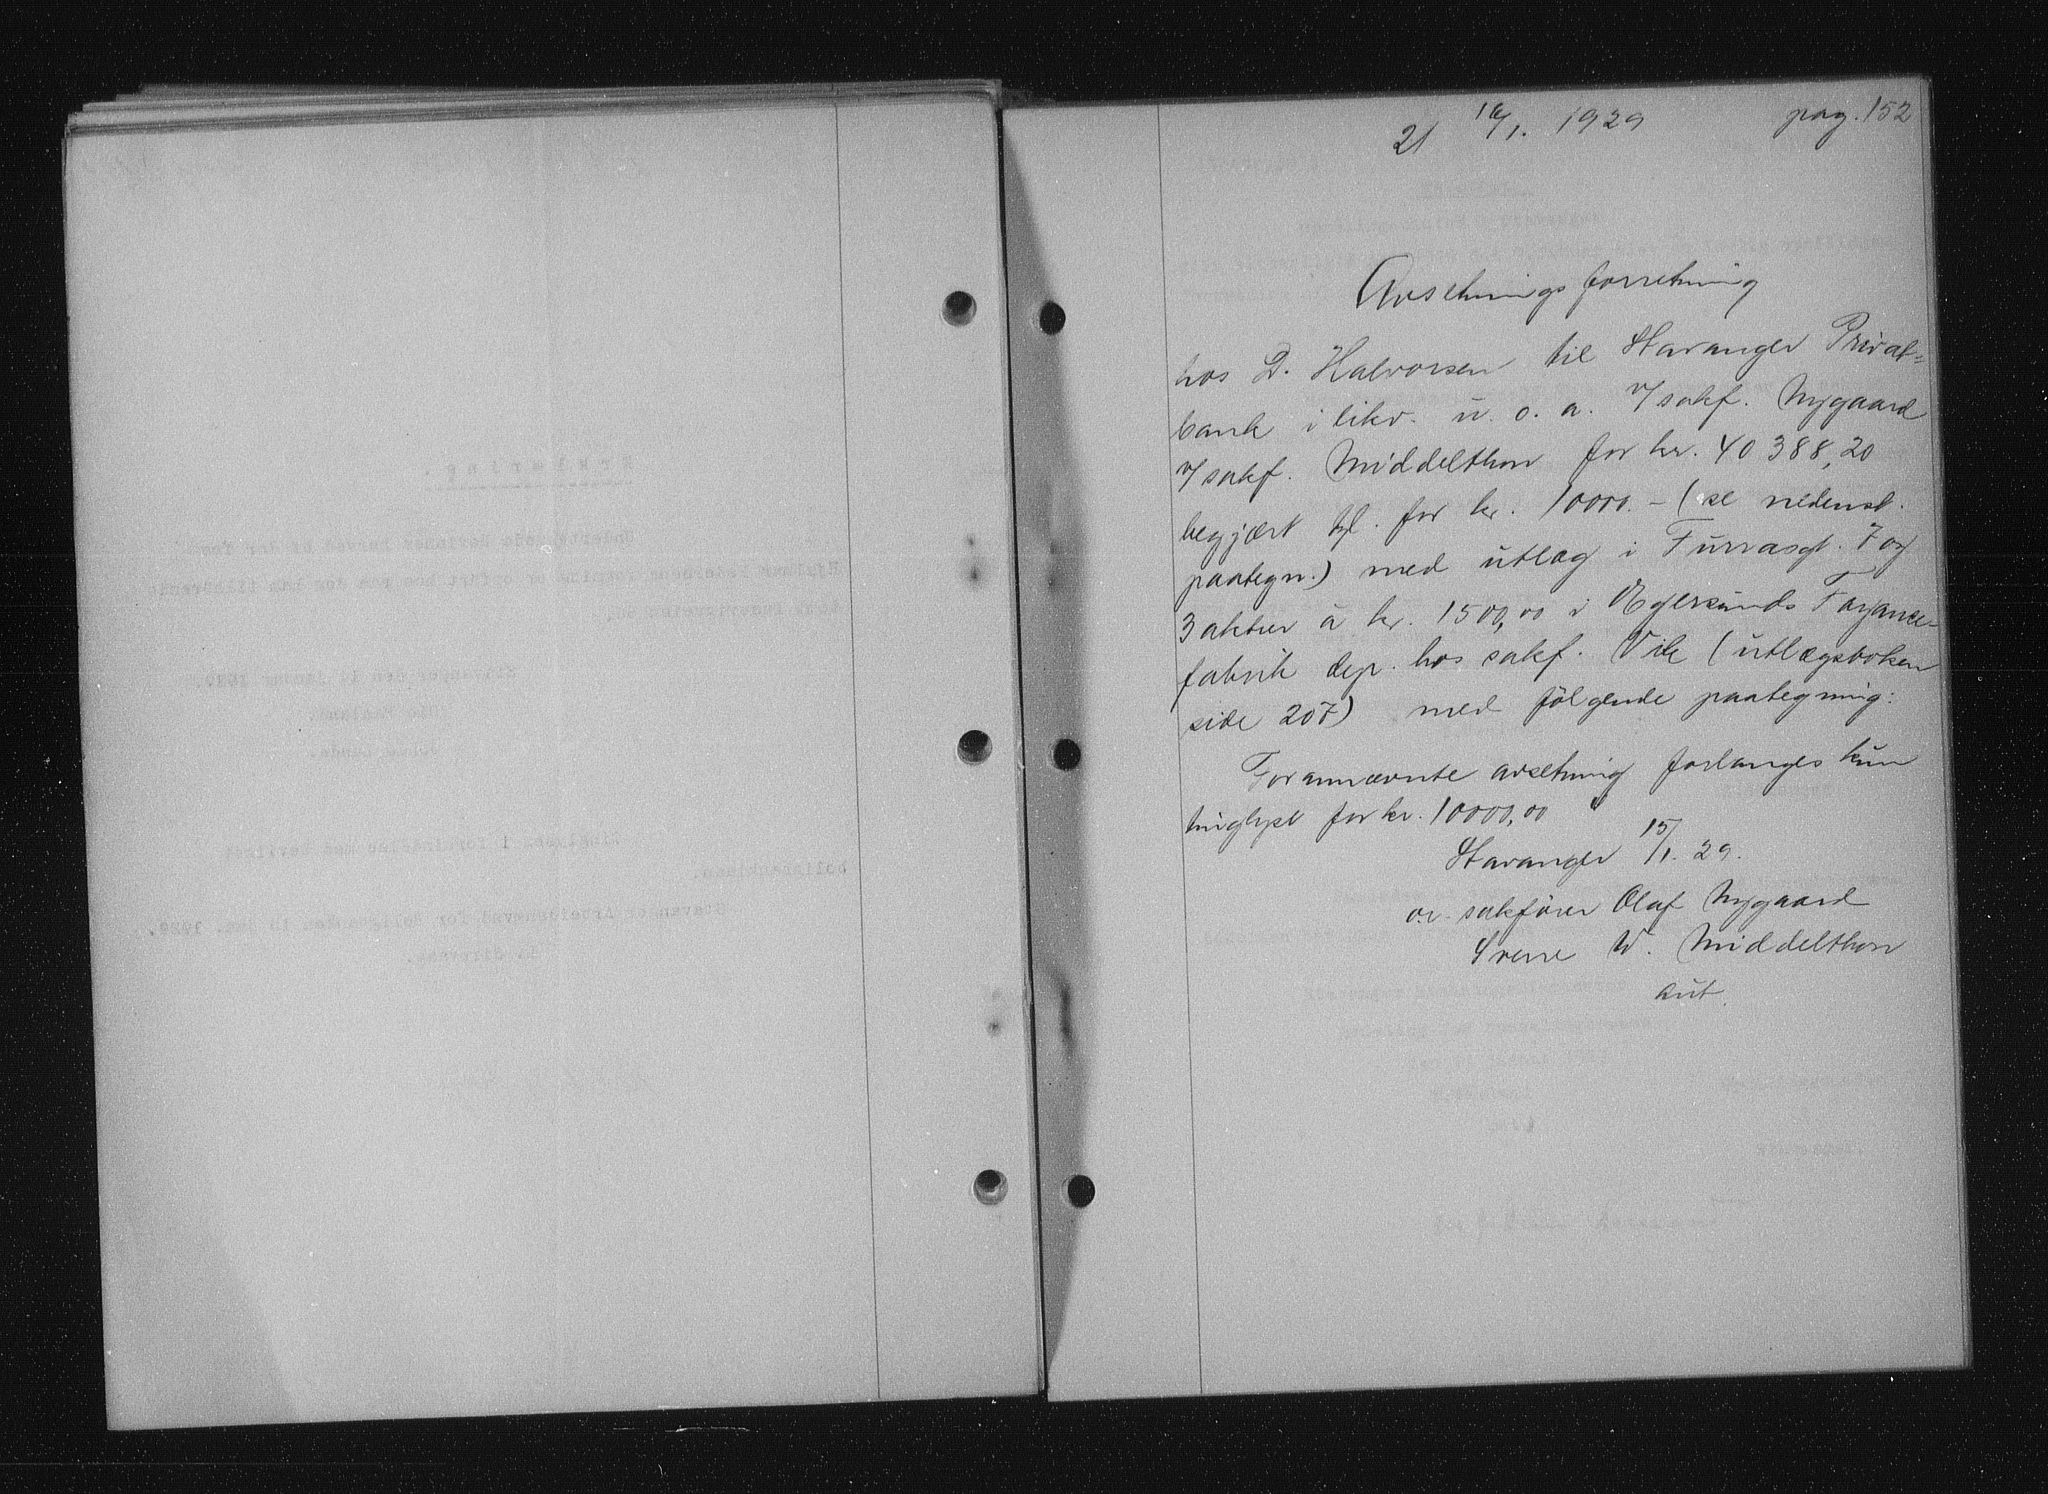 21 16/1. 1929 pag. 152
Avsetningsforretning
hos D. Halvorsen til Stavanger Privat=
bank i likv. u. o. a. v/ sakf. Nygaard
v/ sakf. Middelthon for kr. 40 388,20
begjært tgl. for kr. 10000.- (se nedenst.
paategn.) med utlæg i Furrasgt. 7 og
3 aktier à kr. 1500,00 i Egersunds Fayance=
fabrik dep. hos sakf. Vik (utlægsboken
side 207) med følgende paategning:
Forannævnte avsetning forlanges kun
tinglyst for kr. 10000,00
Stavanger 15/1. 29.
o.r. sakfører Olaf Nygaard
Sverre W. Middelthon
aut.